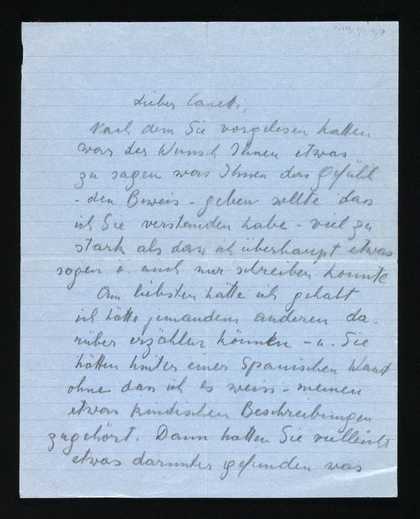 Lieber Canetti,
Nach dem Sie vorgelesen hatten
war der Wunsch Ihnen etwas
zu sagen was Ihnen das Gefühl
- den Beweis - geben sollte das
ich Sie verstanden habe - viel zu
stark als dass ich überhaupt etwas
sagen o. auch nur schreiben konnte
Am liebsten hätte ich gehabt
ich hätte jemandem anderen da-
rüber erzählen können - u. Sie
hätten hinter einer Spanischen Wand
ohne dass ich es weiss - meinen
etwas kindischen Beschreibungen
zugehört. Dann hätten Sie vielleicht
etwas darunter gefunden was